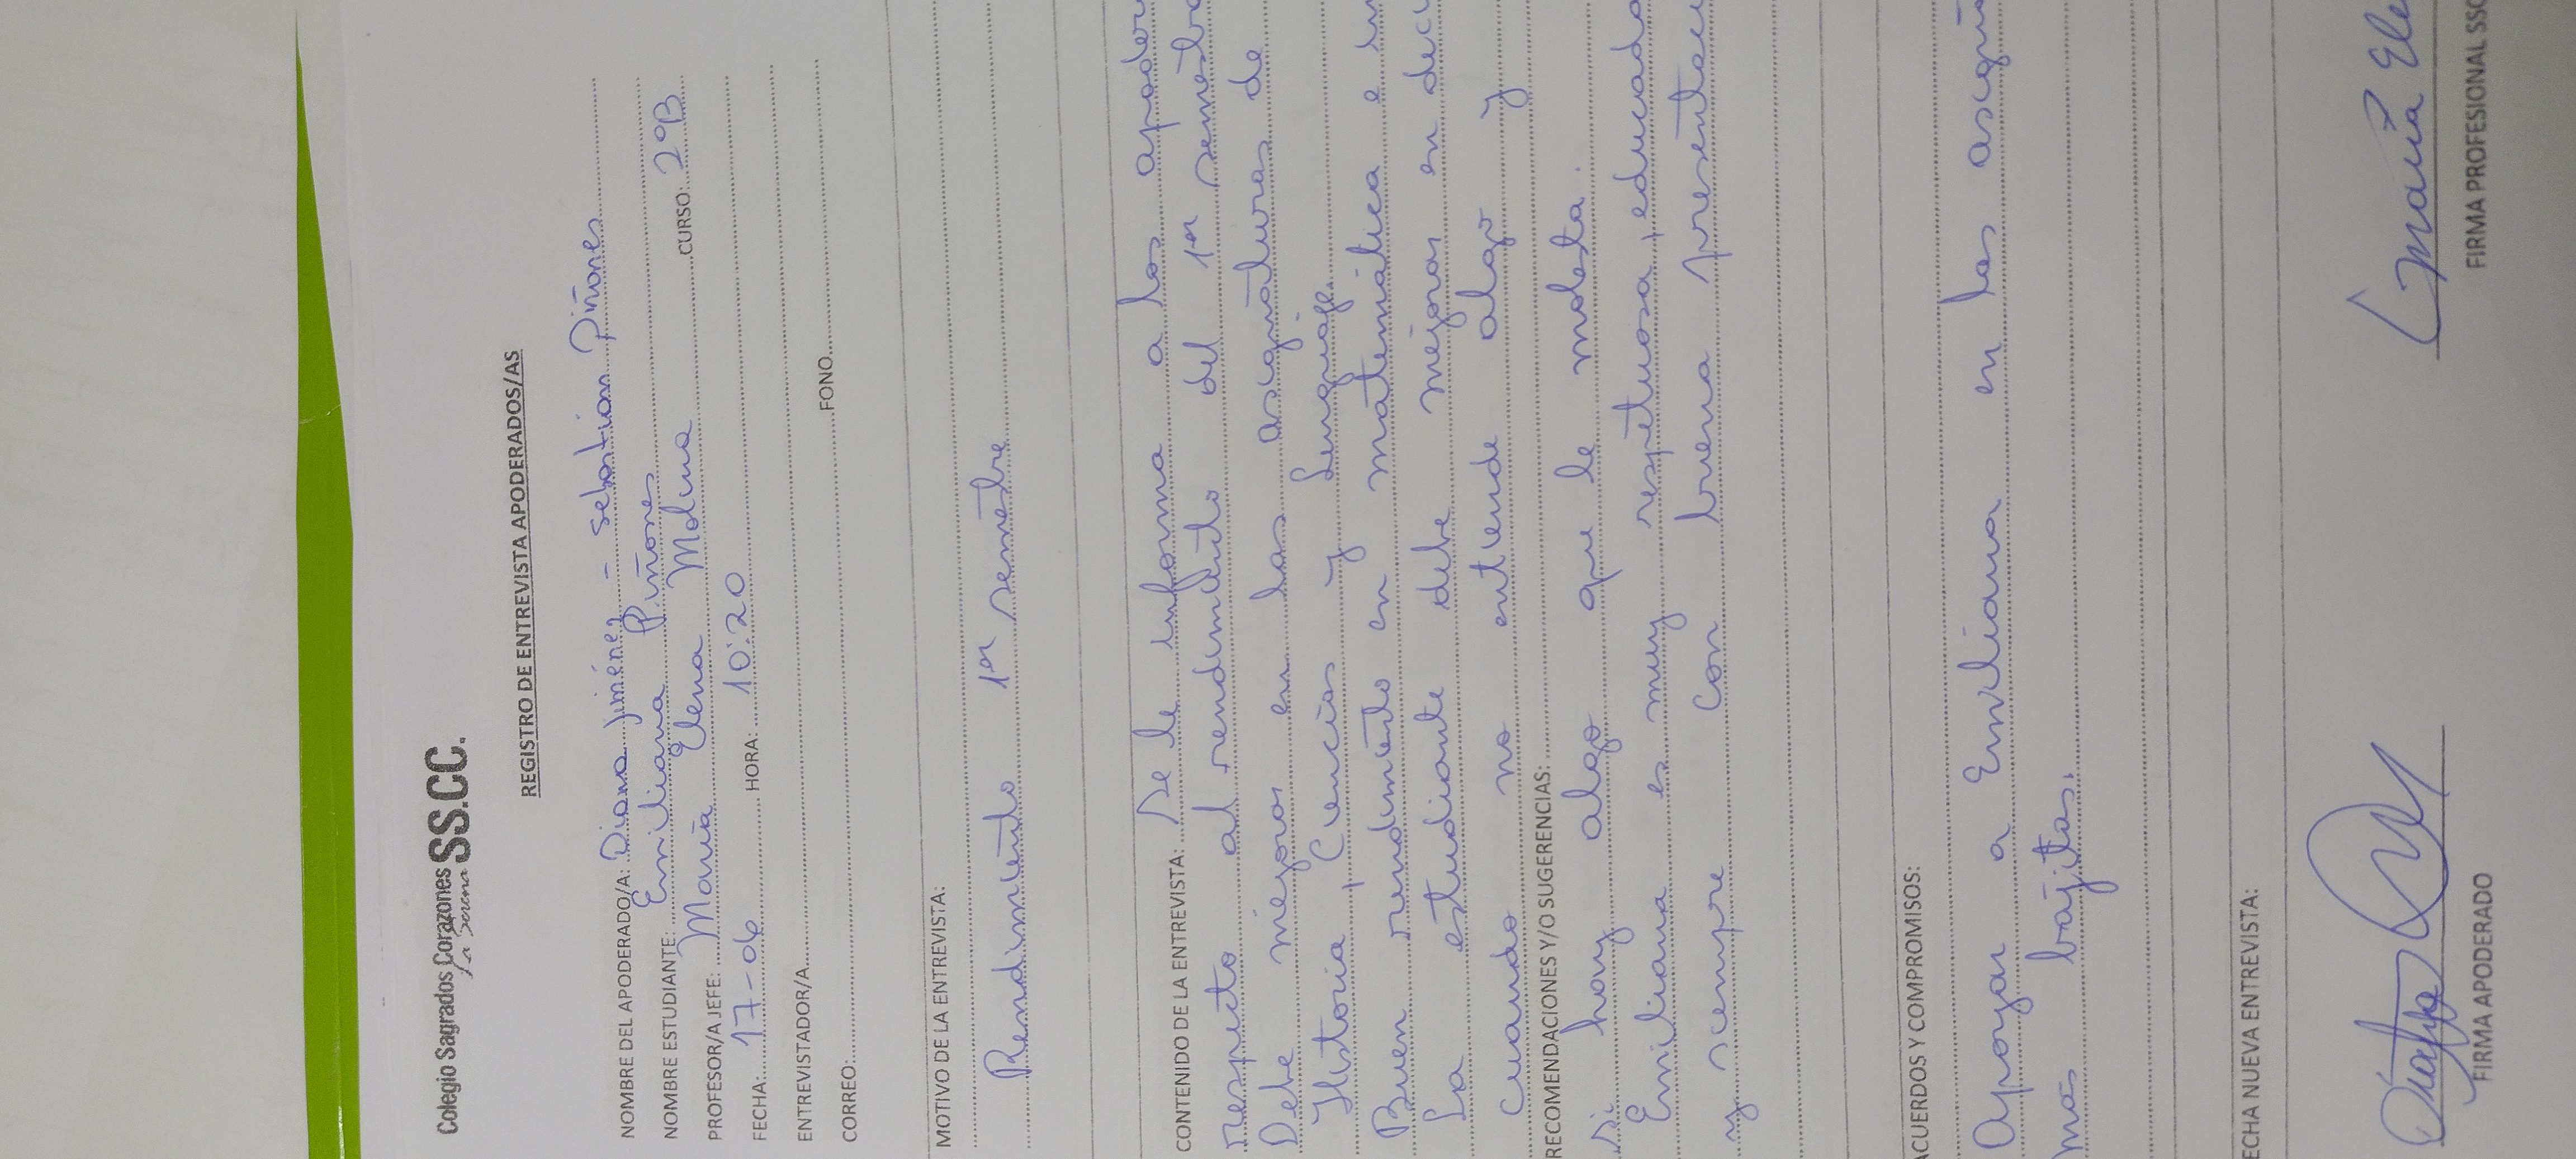 Colegio Sagrados Corazones SS.CC.
La Serena
REGISTRO DE ENTREVISTA APODERADOS/AS
NOMBRE DEL APODERADO/A: Diana Jiménez - sebastian Piñones
NOMBRE ESTUDIANTE: Emiliana Piñones
PROFESOR/A JEFE: María Elena Molina CURSO: 2ºB
FECHA: 17-06 HORA: 10:20
ENTREVISTADOR/A
CORREO: FONO
MOTIVO DE LA ENTREVISTA:
Rendimiento 1er semestre
CONTENIDO DE LA ENTREVISTA: Se le informa a los apoder
respecto al rendimiento del 1er semestre
Debe mejorar en las asignaturas de
Historia, Ciencias y Lenguaje.
Buen rendimiento en matemática e in
La estudiante debe mejorar en deci
Cuando no entiende algo y
RECOMENDACIONES Y/O SUGERENCIAS:
si hay algo que le molesta.
Emiliana es muy respetuosa, educada
y siempre con buena presentaci
ACUERDOS Y COMPROMISOS:
Apoyar a Emiliana en las asign
más bajitas.
ECHA NUEVA ENTREVISTA:
María Ele
FIRMA APODERADO FIRMA PROFESIONAL SSC